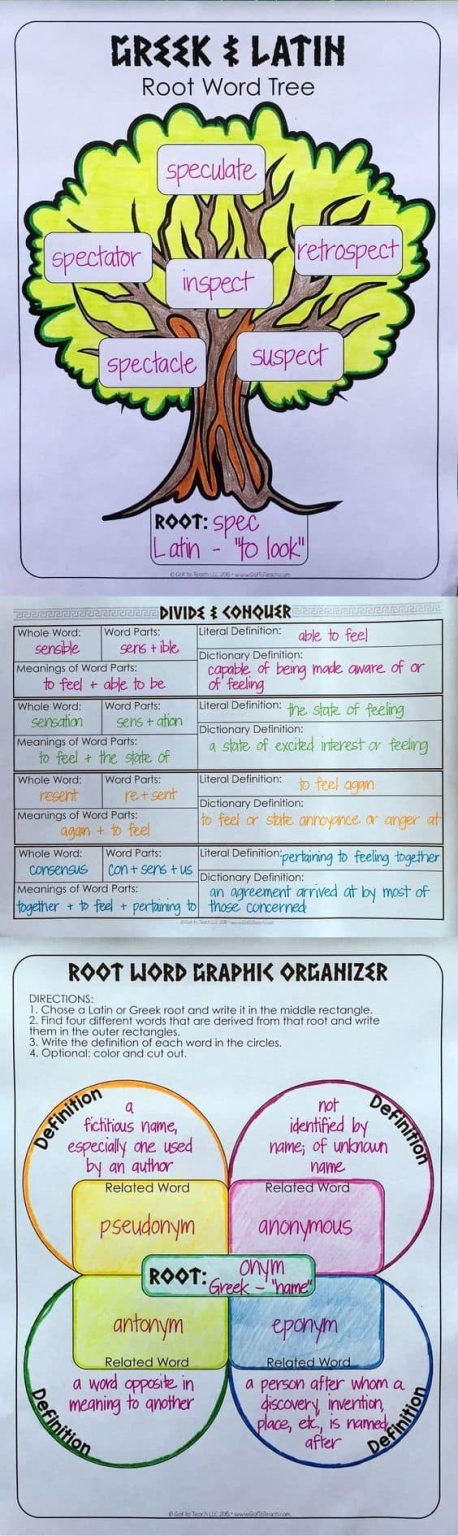 GREEK & LATIN
Root Word Tree
speculate
spectator
retrospect
inspect
spectacle
suspect
ROOT: spec
Latin - "to look"
© Got to Teach LLC 2015 • www.GotToTeach.com
DIVIDE & CONQUER
Whole Word: sensible
Word Parts: sens + ible
Literal Definition: able to feel
Meanings of Word Parts:
to feel + able to be
Dictionary Definition:
capable of being made aware of or
of feeling
Whole Word: sensation
Word Parts: sens + ation
Literal Definition: the state of feeling
Meanings of Word Parts:
to feel + the state of
Dictionary Definition:
a state of excited interest or feeling
Whole Word: resent
Word Parts: re + sent
Literal Definition: to feel again
Meanings of Word Parts:
again + to feel
Dictionary Definition:
to feel or state annoyance or anger at
Whole Word: consensus
Word Parts: con + sens + us
Literal Definition: pertaining to feeling together
Meanings of Word Parts:
together + to feel + pertaining to
Dictionary Definition:
an agreement arrived at by most of
those concerned
ROOT WORD GRAPHIC ORGANIZER
DIRECTIONS:
1. Chose a Latin or Greek root and write it in the middle rectangle.
2. Find four different words that are derived from that root and write
them in the outer rectangles.
3. Write the definition of each word in the circles.
4. Optional: color and cut out.
Definition
a
fictitious name,
especially one used
by an author
Related Word
pseudonym
Definition
not
identified by
name; of unknown
name
Related Word
anonymous
ROOT: onym
Greek - "name"
antonym
Related Word
a word opposite in
meaning to another
Definition
eponym
Related Word
a person after whom a
discovery, invention,
place, etc., is named
after
Definition
© Got to Teach LLC 2015 • www.GotToTeach.com